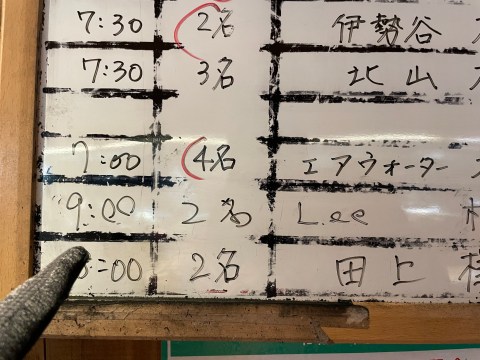 7:30 2名 伊勢谷
7:30 3名 北山
7:00 4名 エアウォーター
9:00 2名 Lee
:00 2名 田上